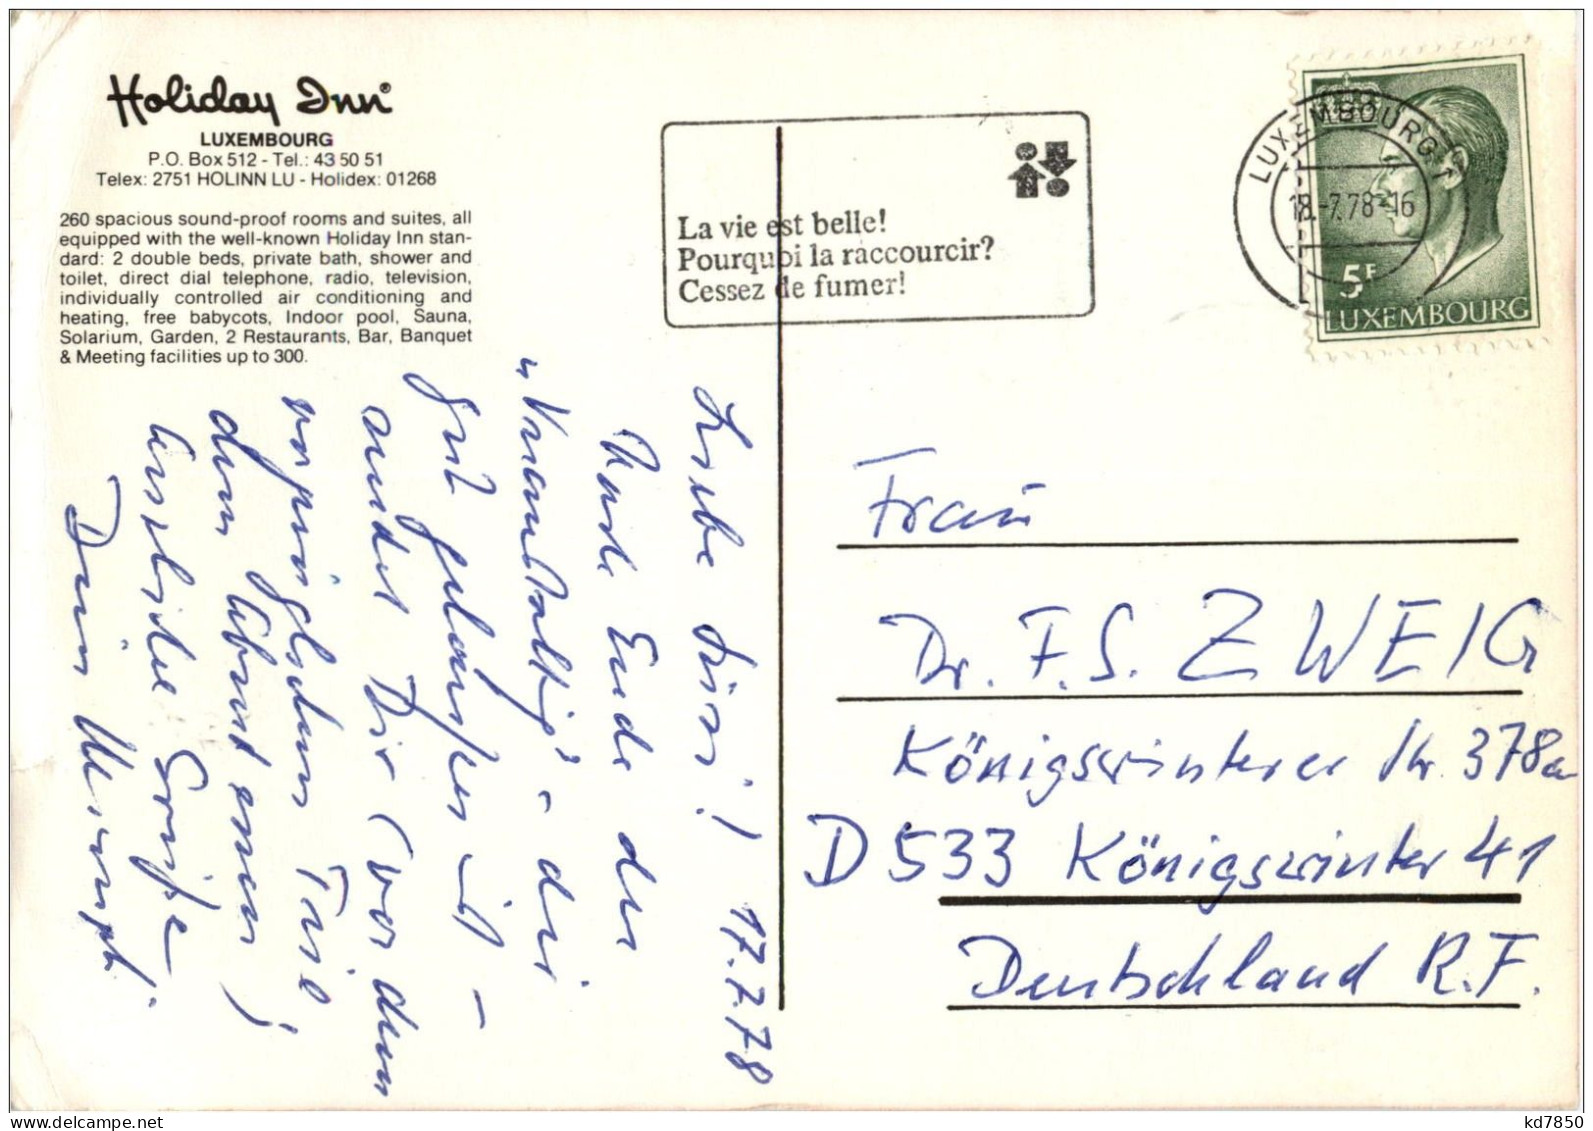 Holiday Inn®
LUXEMBOURG
P.O. Box 512 - Tel.: 43 50 51
Telex: 2751 HOLINN LU - Holidex: 01268
260 spacious sound-proof rooms and suites, all
equipped with the well-known Holiday Inn stan-
dard: 2 double beds, private bath, shower and
toilet, direct dial telephone, radio, television,
individually controlled air conditioning and
heating, free babycots, Indoor pool, Sauna,
Solarium, Garden, 2 Restaurants, Bar, Banquet
& Meeting facilities up to 300.
La vie est belle!
Pourquoi la raccourcir?
Cessez de fumer!
LUXEMBOURG 1
18.-7.78-16
5F
LUXEMBOURG
17.7.78
Liebe
Ende der
die
gut gelaufen ist -
sendet Dir (vor dem
vorzüglichen
dem Abend essen)
herzliche Grüße
Dein
Frau
Dr. F. S. ZWEIG
Königswinterer Str. 378a
D 533 Königswinter 41
Deutschland R. F.
kd7850